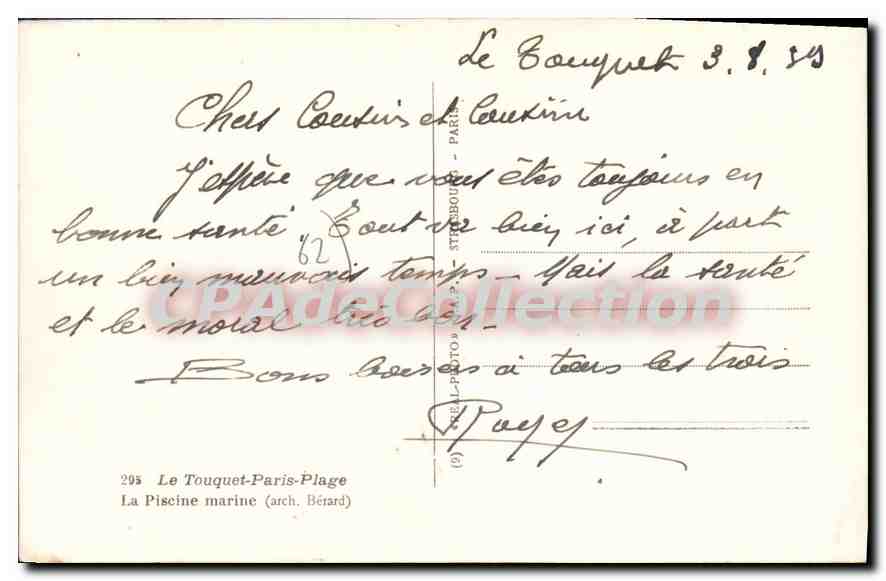 Le Touquet 3.8.39
Chers Cousins et Cousine
J'espère que vous êtes toujours en
bonne santé. Tout va bien ici, à part
62
un bien mauvais temps - Mais la santé
et le moral très bon -
Bons baisers à tous les trois
Roger
295 Le Touquet-Paris-Plage
La Piscine marine (arch. Bérard)
(9) «REAL-PHOTO» C.A.P. - STRASBOURG - PARIS
CPAdeCollection